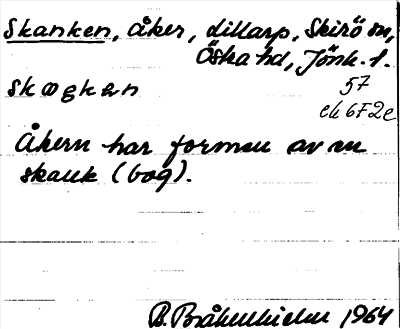 Skanken, åker, Lillarp, Skirö sn,
Östra hd, Jönk. l.
57
ek 6F2e
Åkern har formen av en
skank (bog).
1964